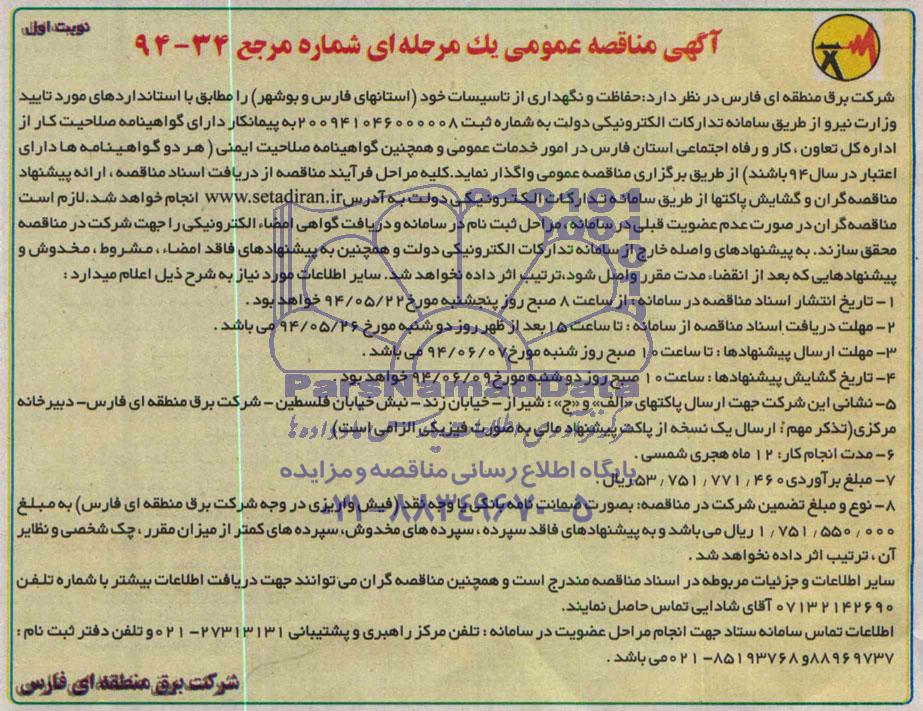 نوبت اول
آگهی مناقصه عمومی یک مرحله ای شماره مرجع ۳۴-۹۴
شرکت برق منطقه ای فارس در نظر دارد:حفاظت و نگهداری از تاسیسات خود (استانهای فارس و بوشهر) را مطابق با استانداردهای مورد تایید
وزارت نیرو از طریق سامانه تدارکات الکترونیکی دولت به شماره ثبت ۲۰۰۹۴۱۰۴۶۰۰۰۰۰۸ به پیمانکار دارای گواهینامه صلاحیت کار از
اداره کل تعاون ، کار و رفاه اجتماعی استان فارس در امور خدمات عمومی و همچنین گواهینامه صلاحیت ایمنی ( هر دو گواهینامه ها دارای
اعتبار در سال ۹۴ باشند) از طریق برگزاری مناقصه عمومی واگذار نماید.کلیه مراحل فرآیند مناقصه از دریافت اسناد مناقصه ، ارائه پیشنهاد
مناقصه گران و گشایش پاکتها از طریق سامانه تدارکات الکترونیکی دولت به آدرس www.setadiran.ir انجام خواهد شد.لازم است
مناقصه گران در صورت عدم عضویت قبلی در سامانه ، مراحل ثبت نام در سامانه و دریافت گواهی امضاء الکترونیکی را جهت شرکت در مناقصه
محقق سازند. به پیشنهادهای واصله خارج از سامانه تدارکات الکترونیکی دولت و همچنین به پیشنهادهای فاقد امضاء ، مشروط ، مخدوش و
پیشنهادهایی که بعد از انقضاء مدت مقرر واصل شود،ترتیب اثر داده نخواهد شد. سایر اطلاعات مورد نیاز به شرح ذیل اعلام میدارد :
۱- تاریخ انتشار اسناد مناقصه در سامانه : از ساعت ۸ صبح روز پنجشنبه مورخ ۹۴/۰۵/۲۲ خواهد بود .
۲- مهلت دریافت اسناد مناقصه از سامانه : تا ساعت ۱۵ بعد از ظهر روز دو شنبه مورخ ۹۴/۰۵/۲۶ می باشد .
۳- مهلت ارسال پیشنهادها : تا ساعت ۱۰ صبح روز شنبه مورخ ۹۴/۰۶/۰۷ می باشد .
۴- تاریخ گشایش پیشنهادها : ساعت ۱۰ صبح روز دو شنبه مورخ ۹۴/۰۶/۰۹ خواهد بود .
ParsNamadData
۵- نشانی این شرکت جهت ارسال پاکتهای «الف» و «ج» : شیراز - خیابان زند - نبش خیابان فلسطین - شرکت برق منطقه ای فارس - دبیرخانه
مرکزی(تذکر مهم : ارسال یک نسخه از پاکت پیشنهاد مالی به صورت فیزیکی الزامی است)
۶- مدت انجام کار : ۱۲ ماه هجری شمسی .
پایگاه اطلاع رسانی مناقصه و مزایده
۷- مبلغ برآوردی ۵۳٫۷۵۱٫۷۷۱٫۴۶۰ ریال .
۰۲۱-۸۸۳۴۹۶۷۰-۵
۸- نوع و مبلغ تضمین شرکت در مناقصه: بصورت ضمانت نامه بانکی یا وجه نقد (فیش واریزی در وجه شرکت برق منطقه ای فارس) به مبلغ
۱٫۷۵۱٫۵۵۰٫۰۰۰ ریال می باشد و به پیشنهادهای فاقد سپرده ،سپرده های مخدوش، سپرده های کمتر از میزان مقرر ، چک شخصی و نظایر
آن ، ترتیب اثر داده نخواهد شد .
سایر اطلاعات و جزئیات مربوطه در اسناد مناقصه مندرج است و همچنین مناقصه گران می توانند جهت دریافت اطلاعات بیشتر با شماره تلفن
۰۷۱۳۲۱۴۲۶۹۰ آقای شادایی تماس حاصل نمایند.
اطلاعات تماس سامانه ستاد جهت انجام مراحل عضویت در سامانه : تلفن مرکز راهبری و پشتیبانی ۲۷۳۱۳۱۳۱-۰۲۱ و تلفن دفتر ثبت نام :
۸۸۹۶۹۷۳۷ و ۸۵۱۹۳۷۶۸-۰۲۱ می باشد .
شرکت برق منطقه ای فارس